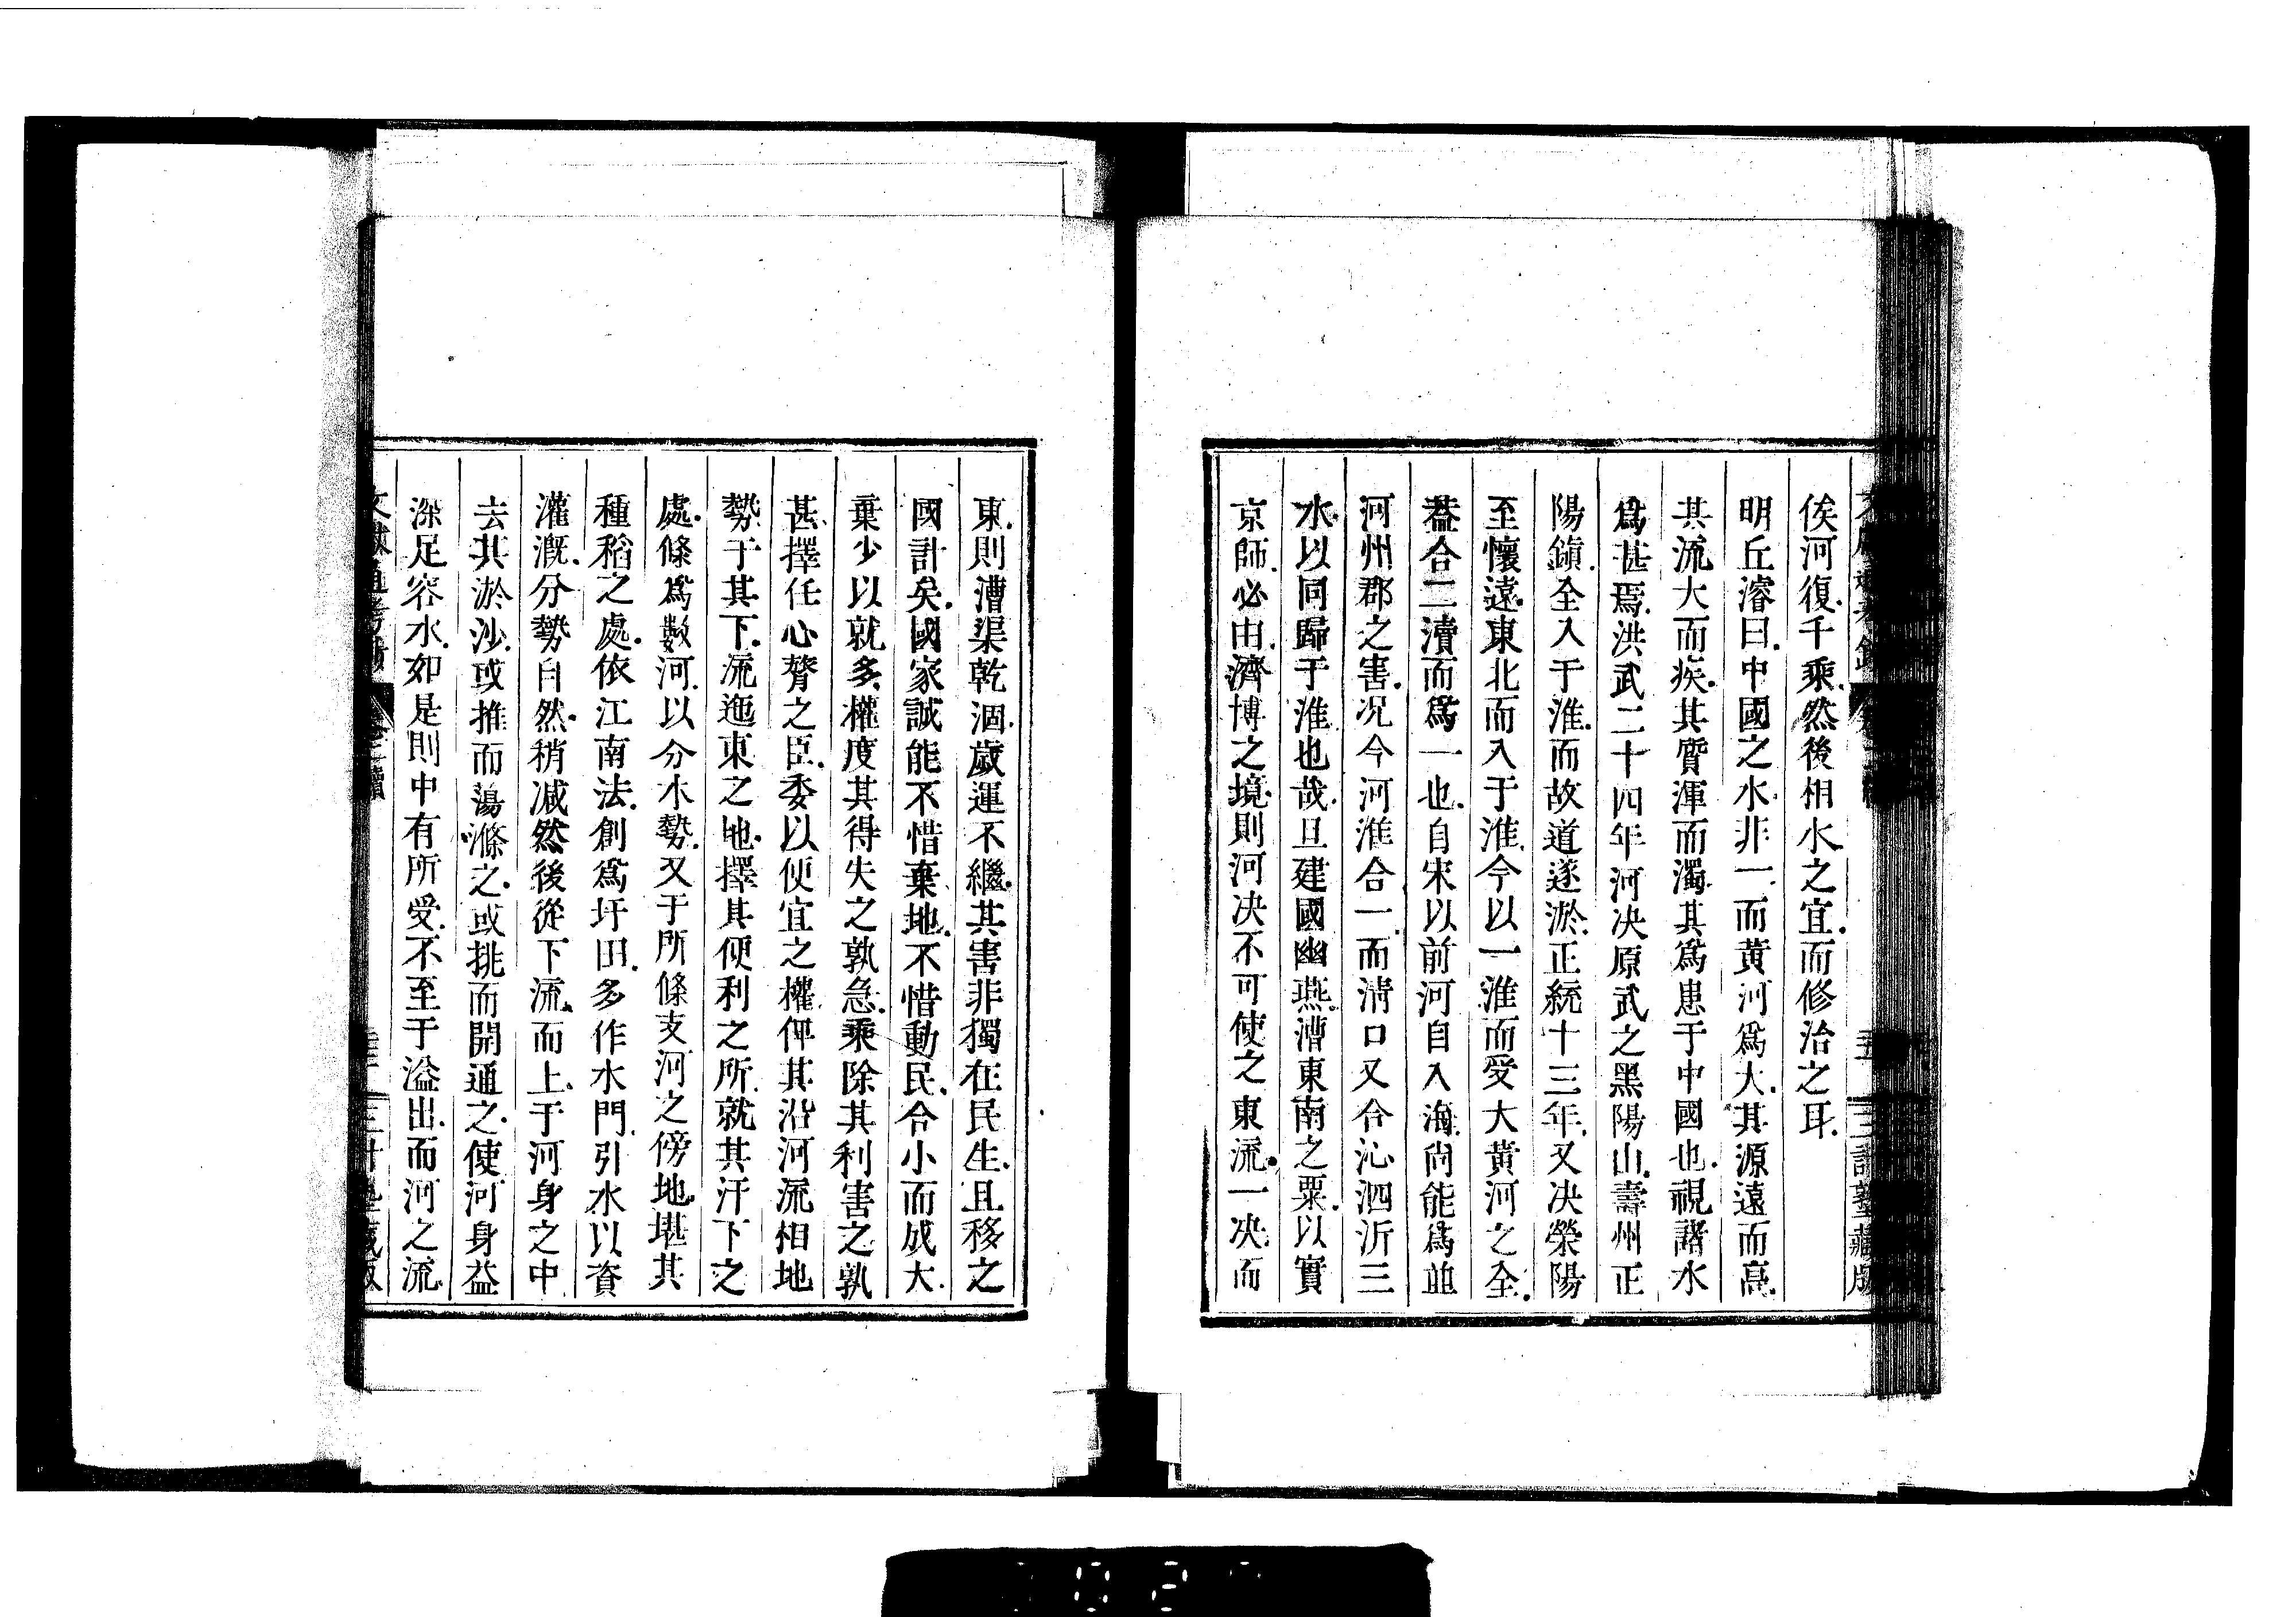 俟河復千乘然後相水之宜而修治之耳
明丘濬曰中國之水非一而黃河爲大其源遠而高
其流大而疾其質渾而濁其爲患于中國也視諸水
爲甚焉洪武二十四年河决原武之黑陽山壽州正
陽鎮全入于淮而故道遂淤正統十三年又决滎陽
至懷遠東北而入于淮今以一淮而受大黃河之全
葢合二瀆而爲一也自宋以前河自入海尚能爲並
河州郡之害况今河淮合一而淸口又合沁泗沂三
水以同歸于淮也哉且建國幽燕漕東南之粟以實
京師必由濟博之境則河决不可使之東流一决而
東則漕渠乾涸歲運不繼其害非獨在民生且移之
國計矣國家誠能不惜棄地不惜動民令小而成大
棄少以就多權度其得失之孰急乘除其利害之孰
甚擇任心膂之臣委以便宜之權俾其沿河流相地
勢于其下流迤東之地擇其便利之所就其汙下之
處條爲數河以分水勢又于所條支河之傍地堪其
種稻之處依江南法創爲圩田多作水門引水以資
灌漑分勢自然稍减然後從下流而上于河身之中
去其淤沙或推而蕩滌之或挑而開通之使河身益
深足容水如是則中有所受不至于溢出而河之流